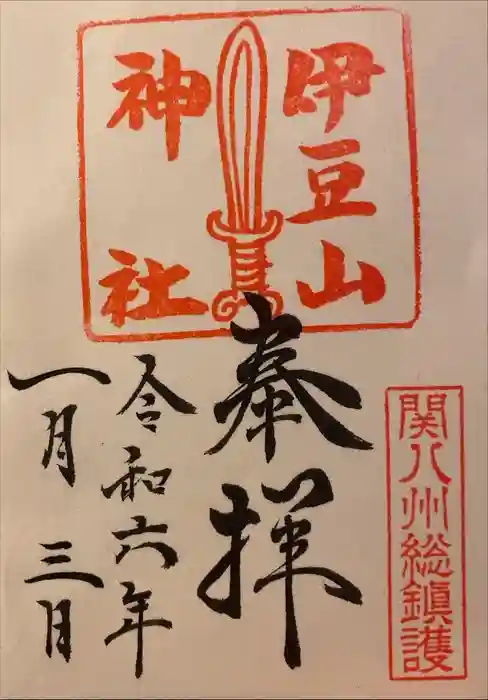 伊豆山
神社
奉拝
関八州総鎮護
令和六年
一月三日